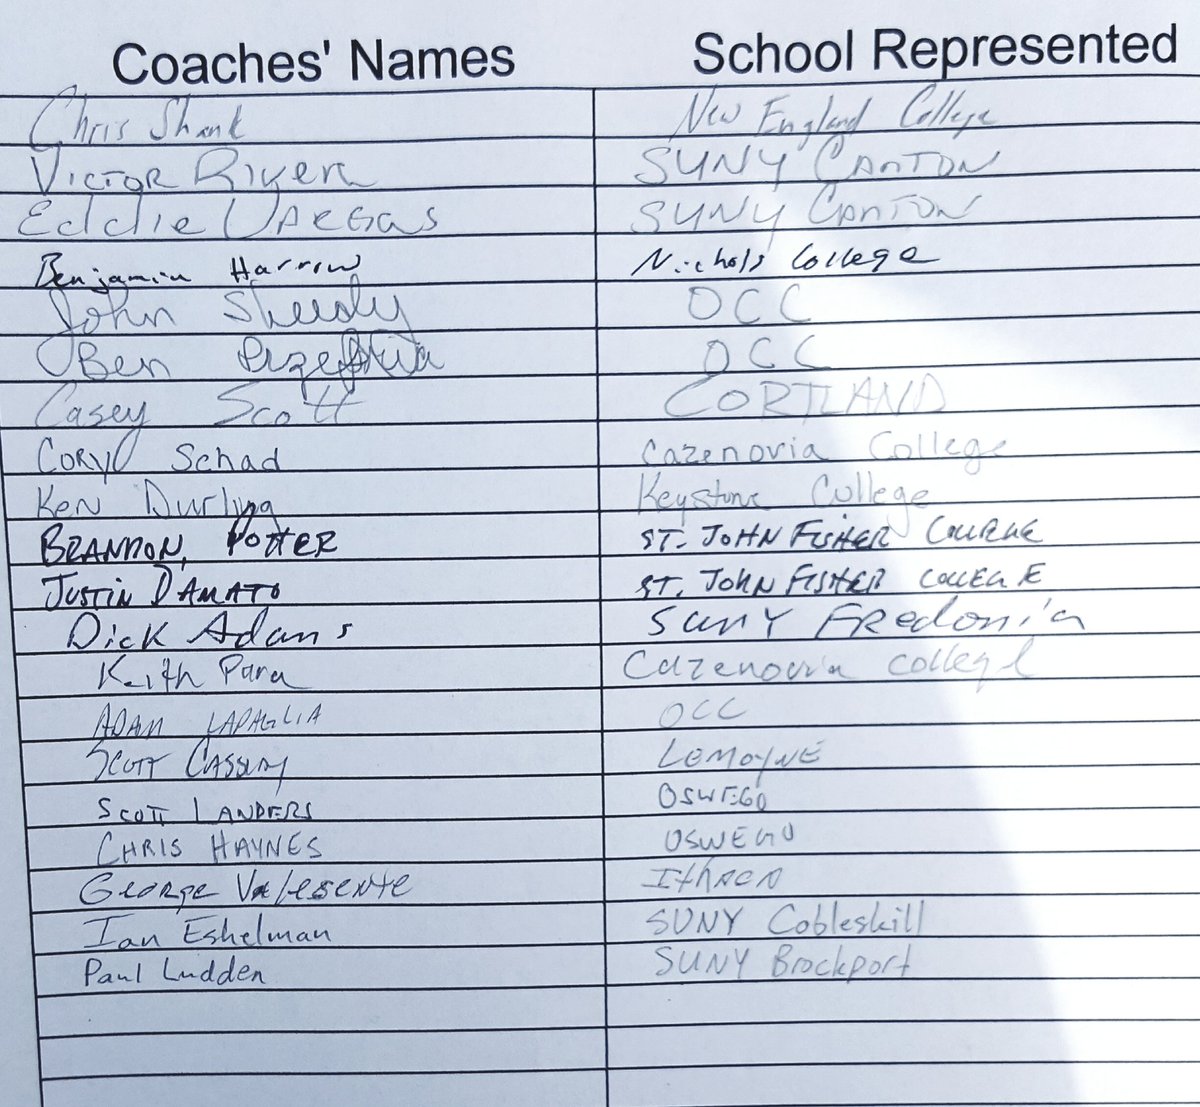 Coaches' Names School Represented
Chris Shank New England College
VICTOR Rivera SUNY CANTON
Eddie VARGAS SUNY CANTON
Benjamin Harrin Nichols College
John Sheedy OCC
Ben OCC
Casey Scott CORTLAND
CORY Schad Cazenovia College
Ken Durling Keystone College
BRANDON POTTER ST. JOHN FISHER COLLEGE
JUSTIN DAMATO ST. JOHN FISHER COLLEGE
Dick Adams SUNY FRedonia
Keith Para Cazenovia College
ADAM LAPAGLIA OCC
SCOTT CASSIDY LEMOYNE
SCOTT LANDERS OSWEGO
CHRIS HAYNES OSWEGO
GeoRge VAlesente IthAcA
Ian Eshelman SUNY Cobleskill
Paul Ludden SUNY Brockport